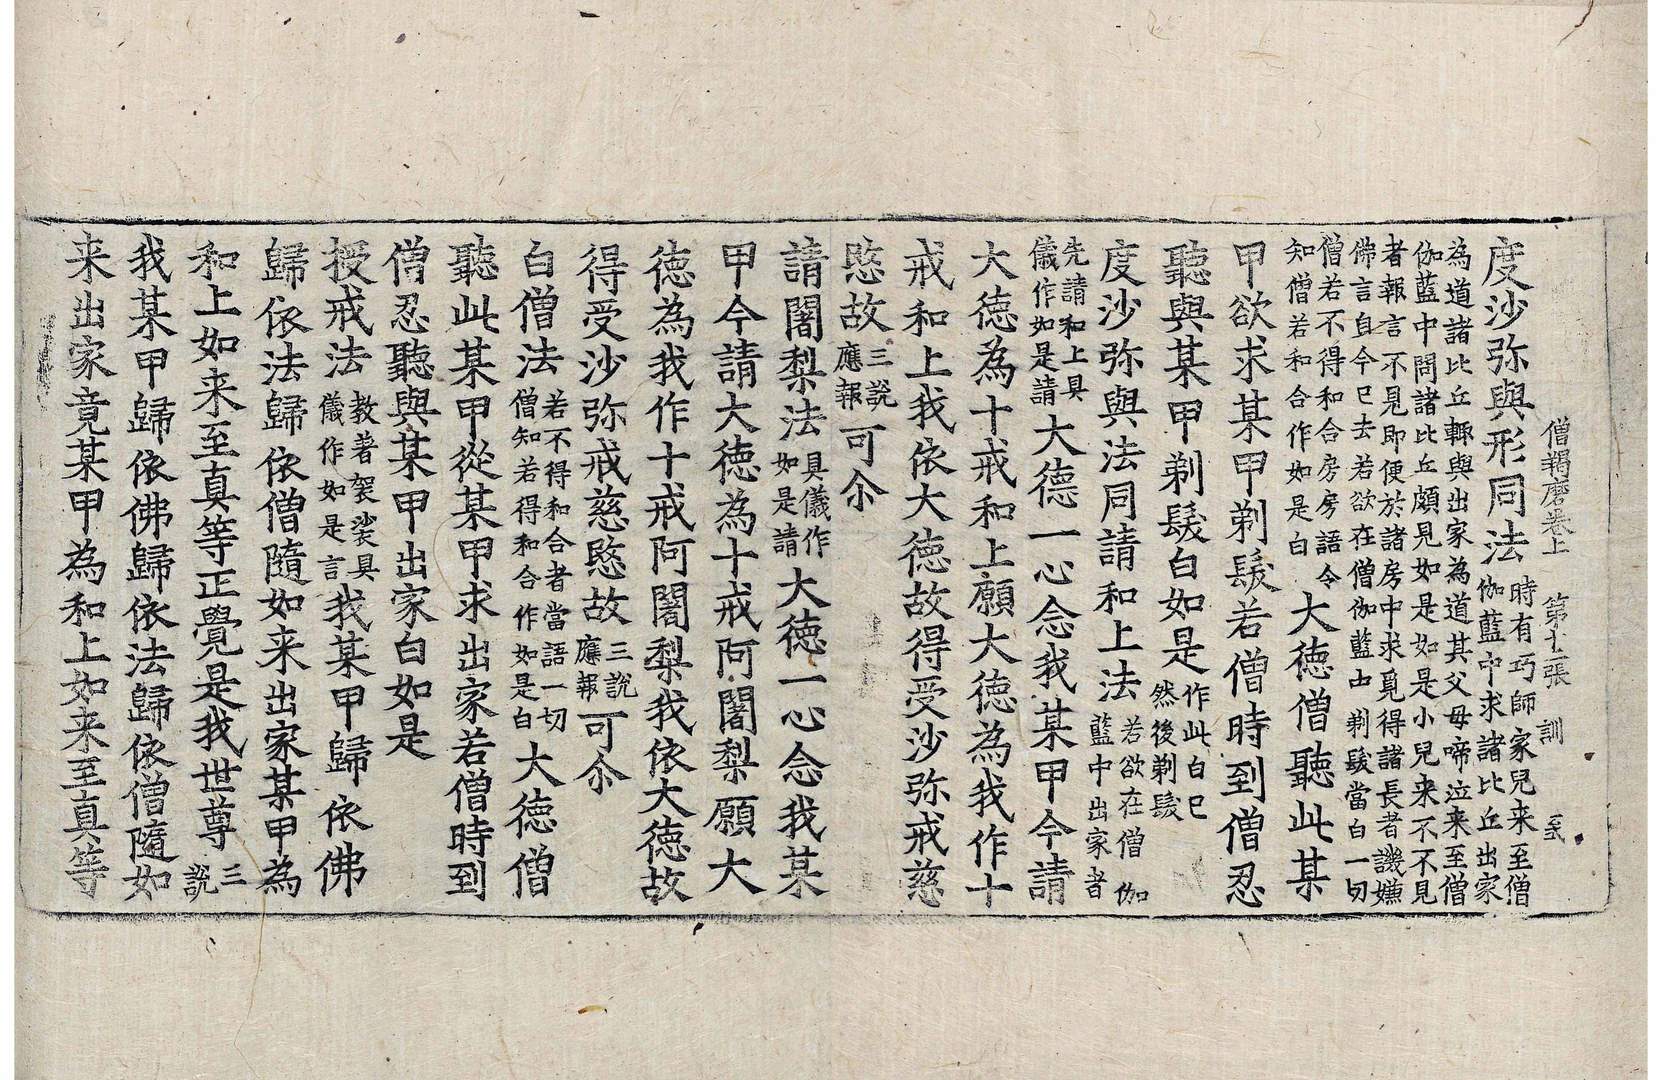 僧羯磨卷上 第 張 訓
度沙弥與形同法 時有巧師家兒来至僧
伽藍中求諸比丘出家
為道諸比丘輒與出家為道其父母啼泣来至僧
伽藍中問諸比丘頗見如是如是小兒来不不見
者報言不見即便於諸房中求覓得諸長者譏嫌
佛言自今已去若欲在僧伽藍中剃髮當白一切
僧若不得和合房房語令
知僧若和合作如是白 大德僧聽此某
甲欲求某甲剃髮若僧時到僧忍
聽與某甲剃髮白如是 作此白已
然後剃髮
度沙弥與法同請和上法 若欲在僧伽
藍中出家者
先請和上具
儀作如是請 大德一心念我某甲今請
大德為十戒和上願大德為我作十
戒和上我依大德故得受沙弥戒慈
愍故 三説
應報 可尒
請闍梨法 具儀作
如是請 大德一心念我某
甲今請大德為十戒阿闍梨願大
德為我作十戒阿闍梨我依大德故
得受沙弥戒慈愍故 三説
應報 可尒
白僧法 若不得和合者當語一切
僧知若得和合作如是白 大德僧
聽此某甲從某甲求出家若僧時到
僧忍聽與某甲出家白如是
授戒法 教著袈裟具
儀作如是言 我某甲歸依佛
歸依法歸依僧隨如来出家某甲為
和上如来至真等正覺是我世尊 三
説
我某甲歸依佛歸依法歸依僧隨如
来出家竟某甲為和上如来至真等